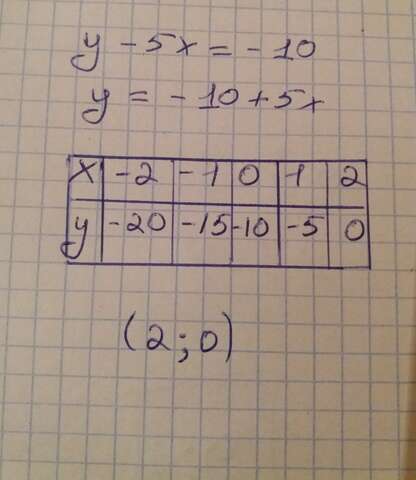 y - 5x = - 10
y = - 10 + 5x
x -2 -1 0 1 2
y -20 -15 -10 -5 0
(2;0)